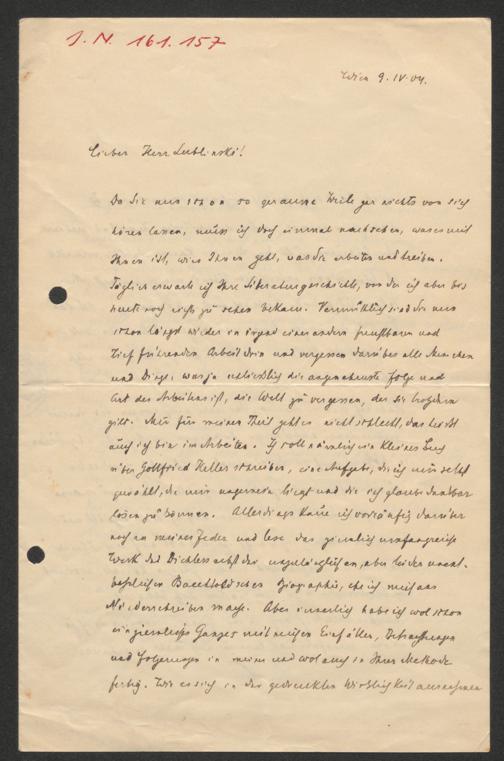 J. N. 161.157
Wien 9. IV. 04.
Lieber Herr Lublinski!
Da Sie nun schon so geraume Weile gar nichts von sich
hören lassen, muss ich doch einmal nachsehen, was es mit
Ihnen ist, wie's Ihnen geht, was Sie arbeiten und treiben.
Täglich erwarte ich Ihre Literaturgeschichte, von der ich aber bis
heute noch nichts zu sehen bekam. Vermutlich sind Sie nun
schon längst wieder in irgend einer andern fruchtbaren und
tief führenden Arbeit drin und vergessen darüber alle Menschen
und Dinge, was ja schließlich die angenehmste Folge und
Art des Arbeitens ist, die Welt zu vergessen, der sie trotzdem
gilt. Mir für meinen Theil geht es nicht schlecht, das heißt
auch ich bin im Arbeiten. Ich soll nämlich ein kleines Buch
über Gottfried Keller schreiben, eine Aufgabe, die ich mir selbst
gewählt, die mir ungemein liegt und die ich glaube dankbar
lösen zu können. Allerdings kaue ich vorläufig darüber
noch an meiner Feder und lese das ziemlich umfangreiche
Werk des Dichters nebst der unzulänglichen, aber leider unent-
behrlichen Baechtold'schen Biographie, ehe ich mich ans
Niederschreiben mache. Aber innerlich habe ich wol schon
ein ziemliches Ganzes mit meinen Einfällen, Betrachtungen
und Folgerungen in meiner und wol auch in Ihrer Methode
fertig. Wie es sich in der gedruckten Wirklichkeit ausnehmen